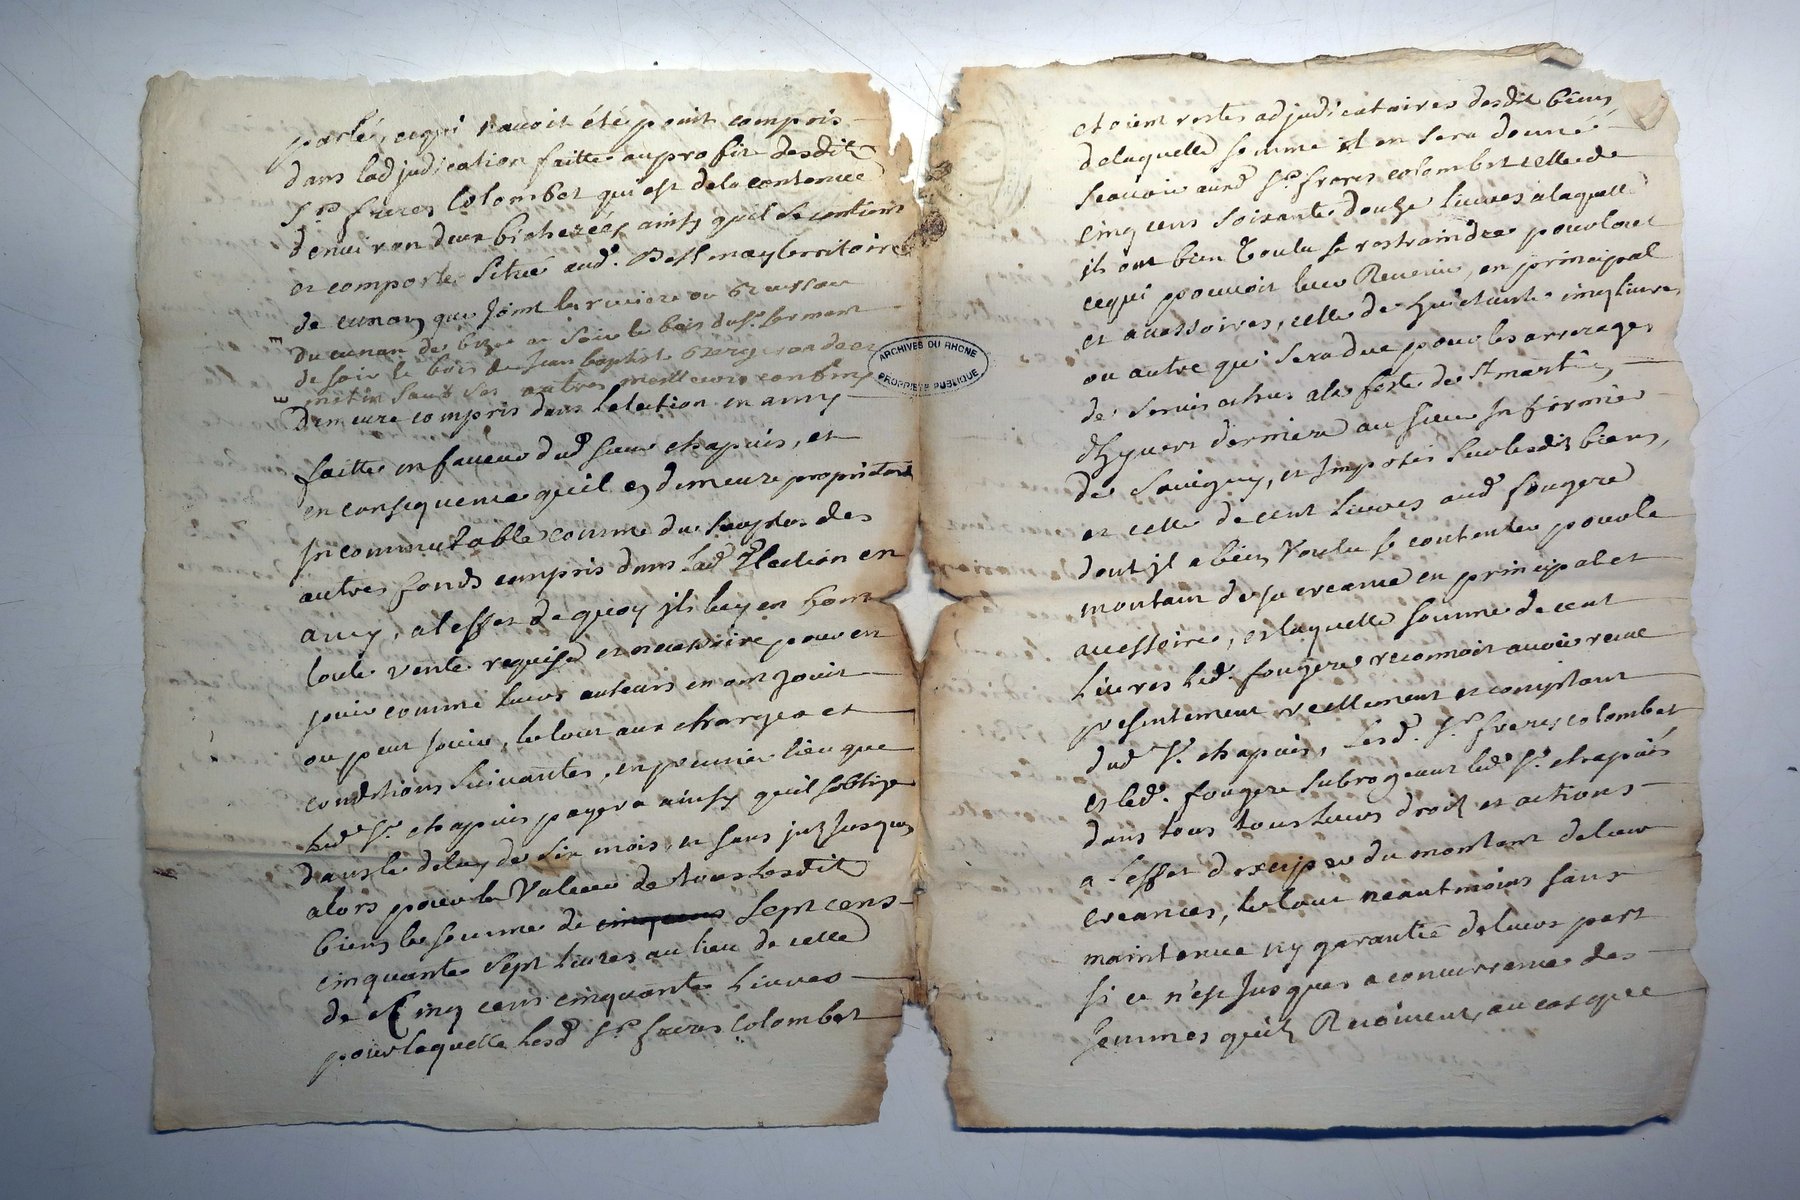 parlé, cequi navoit été point compris
dans ladjudication faitte au profit desdits
Srs freres Colombet qui est dela contenue
denviron deux bicherées ainsy quil se contient
et comporte situé aud. territoire
de cunay que joint la riviere ou ruisseau
du cunan de bize et soir le bois du sr
de soir le bois de Jean baptiste
matin sauf ses autres meilleurs confins
Demeure compris dans lelection en amy
faitte en faveur dud sieur chapuis, et
en consequence quil en demeure proprietaire
Incommutable comme du surplus des
autres fonds compris dans lad Election en
amy, aleffet de quoy ils luy en font
toute vente requise et necessaire pour en
jouir comme leurs auteurs en ont jouit
ou peut jouir, le tout aux charges et
conditions suivantes, en premier lieu que
led Sr. chapuis payera ainsy quil soblige
dans le delay de six mois, et sans jusques
alors pour la valeur de tous lesdits
biens la somme de cinq cens sept cens
cinquante sept livres au lieu de celle
de Cinq cens cinquante livres
pour laquelle lesd Srs freres Colombet
ARCHIVES DU RHONE
PROPRIETE PUBLIQUE
etoient restes adjudicataires desdit biens
delaquelle somme il en sera donné
scavoir auxd Srs freres colombet celle de
cinq cens soixante douze livres alaquelle
ils ont bien voulu se restraindre pour tout
cequi pouvoit leur Revenir, en principal
et accessoires, celle de huictante cinq livres
ou autre qui sera due pour les arrerages
de servis echus ala feste de St martin,
dhyvert dernier au sieur fermier
de Savigny, et Imposés sur lesdit biens,
et celle de cent livres aud fougere
dont jl a bien voulu se contenter pour le
montant de sa creance en principal et
accessoire, et laquelle somme de cent
Livres led. fougere reconnoit avoir receu
presentement reellement et comptant
dud Sr. chapuis, Lesd. Srs. freres colombet
et led. fougere subrogeant led Sr. chapuis
dans tous tous leurs droit et actions
a leffet dexciper du montant de leur
creances, le tout neantmoins sans
maintenue ny garantie de leurs part
si ce n'est jusques a concurrence des
sommes quils Recoivent, au cas que